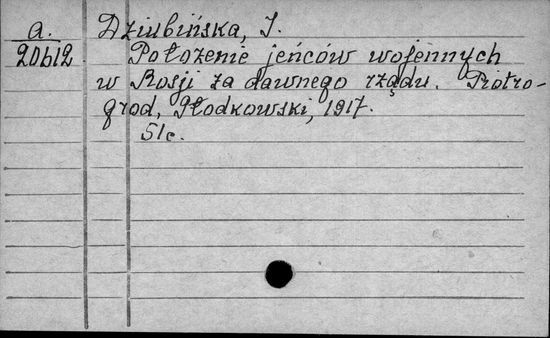 a. Dziubińska, J.
20612. Położenie jeńców wojennych
w Rosji za dawnego rządu. Piotro-
grod, Płodkowski, 1917.
51c.